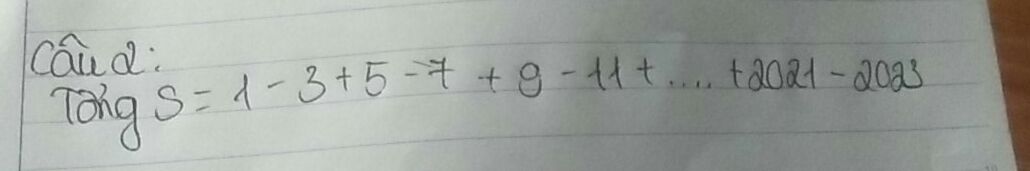 Câu 2:
Tổng S = 1 - 3 + 5 - 7 + 9 - 11 + .... + 2021 - 2023